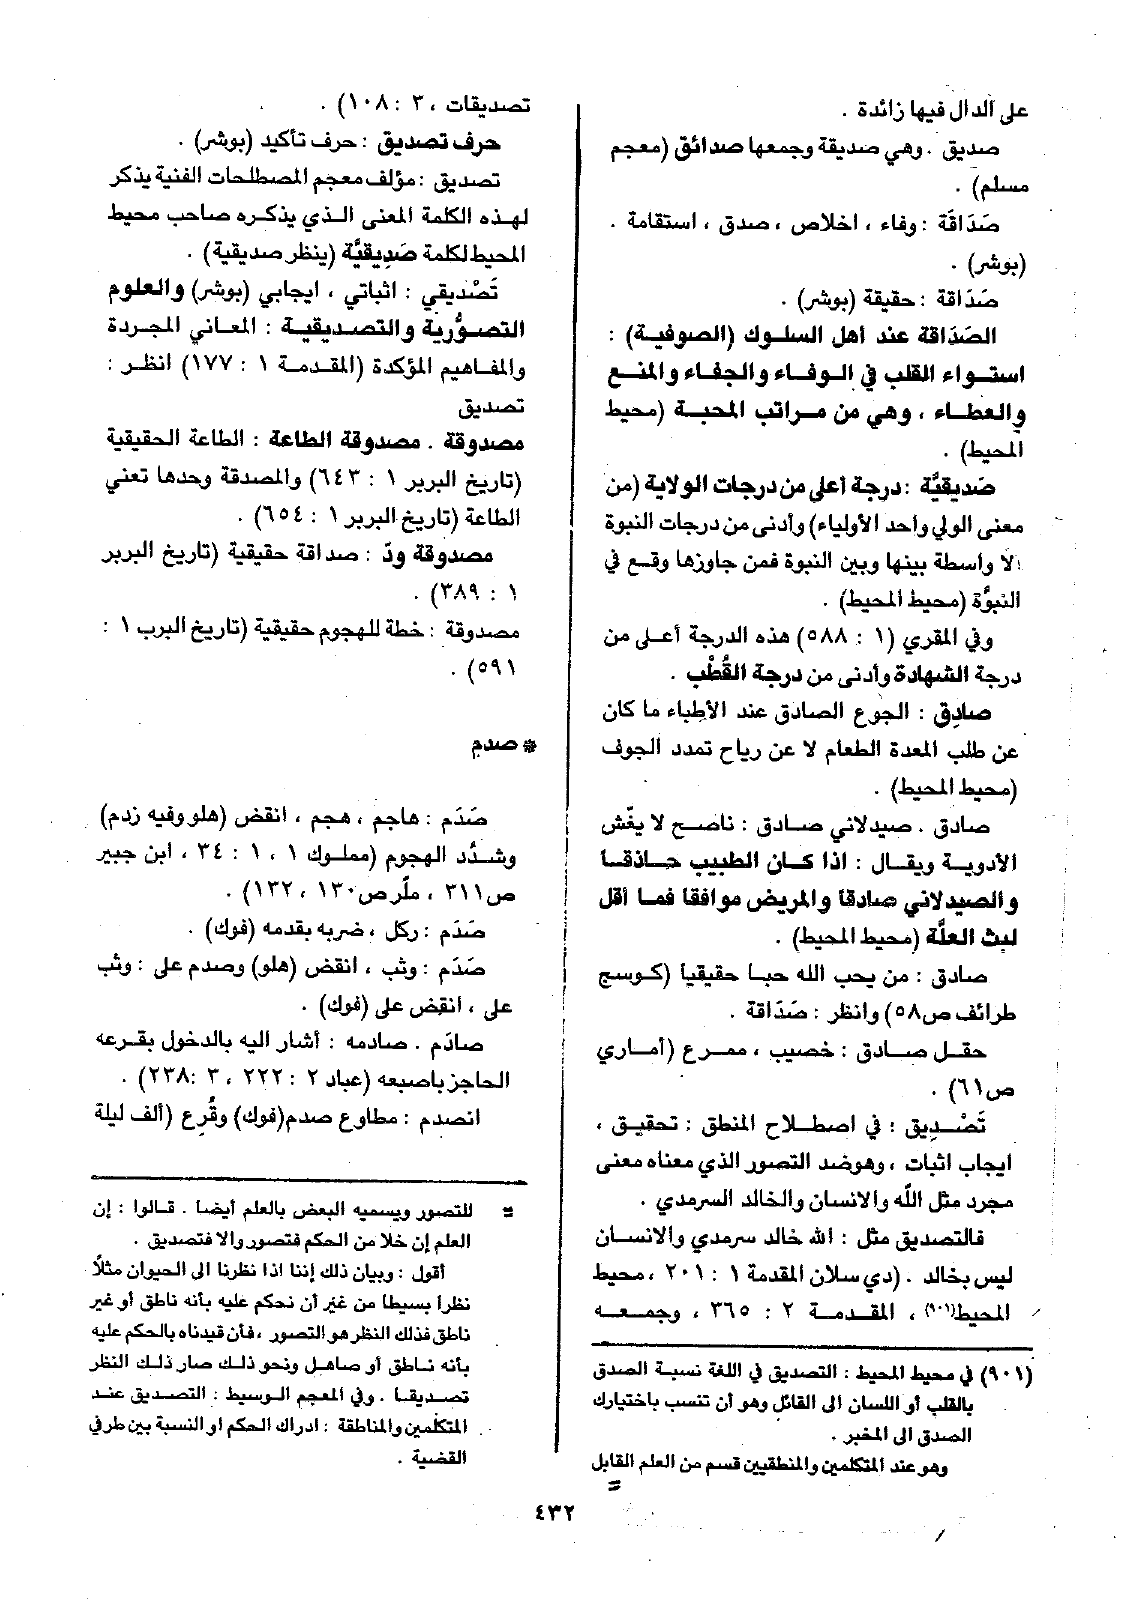 على الدال فيها زائدة .
صديق . وهي صديقة وجمعها صدائق (معجم
مسلم) .
صَدَاقَة : وفاء ، اخلاص ، صدق ، استقامة .
(بوشر) .
صَدَاقة : حقيقة (بوشر) .
الصَدَاقة عند أهل السلوك (الصوفية) :
استواء القلب في الوفاء والجفاء والمنع
والعطاء ، وهي من مراتب المحبة (محيط
المحيط) .
صَديقيَّة : درجة أعلى من درجات الولاية (من
معنى الولي واحد الأولياء) وأدنى من درجات النبوة
الا واسطة بينها وبين النبوة فمن جاوزها وقع في
النبوَّة (محيط المحيط) .
وفي المقري (١ : ٥٨٨) هذه الدرجة أعلى من
درجة الشهادة وأدنى من درجة القُطْب .
صادِق : الجوع الصادق عند الأطباء ما كان
عن طلب المعدة الطعام لا عن رياح تمدد الجوف
(محيط المحيط) .
صادق . صيدلاني صادق : ناصح لا يغش
الأدوية ويقال : اذا كان الطبيب حاذقا
والصيدلاني صادقا والمريض موافقا فما أقل
لبث العلَّة (محيط المحيط) .
صادق : من يحب الله حبا حقيقيا (كوسج
طرائف ص٥٨) وانظر : صَدَاقة .
حقل صادق : خصيب ، ممرع (أماري
ص٦١) .
تَصْدِيق : في اصطلاح المنطق : تحقيق ،
ايجاب اثبات ، وهوضد التصور الذي معناه معنى
مجرد مثل اللّه والانسان والخالد السرمدي .
فالتصديق مثل : الله خالد سرمدي والانسان
ليس بخالد . (دي سلان المقدمة ١ : ٢٠١ ، محيط
المحيط(٩٠١) ، المقدمة ٢ : ٣٦٥ ، وجمعه
(٩٠١) في محيط المحيط : التصديق في اللغة نسبة الصدق
بالقلب أو اللسان الى القائل وهو أن تنسب باختيارك
الصدق الى المخبر .
وهو عند المتكلمين والمنطقيين قسم من العلم القابل
=
تصديقات ، ٣ : ١٠٨) .
حرف تصديق : حرف تأكيد (بوشر) .
تصديق : مؤلف معجم المصطلحات الفنية يذكر
لهذه الكلمة المعنى الذي يذكره صاحب محيط
المحيط لكلمة صَدِيقيَّة (ينظر صديقية) .
تَصْديقي : اثباتي ، ايجابي (بوشر) والعلوم
التصوُّرية والتصديقية : المعاني المجردة
والمفاهيم المؤكدة (المقدمة ١ : ١٧٧) انظر :
تصديق
مصدوقة . مصدوقة الطاعة : الطاعة الحقيقية
(تاريخ البربر ١ : ٦٤٣) والمصدقة وحدها تعني
الطاعة (تاريخ البربر ١ : ٦٥٤) .
مصدوقة ودّ : صداقة حقيقية (تاريخ البربر
١ : ٣٨٩) .
مصدوقة : خطة للهجوم حقيقية (تاريخ البرب ١ :
٥٩١) .
* صدم
صَدَم : هاجم ، هجم ، انقض (هلو وفيه زدم)
وشدَّد الهجوم (مملوك ١ ، ١ : ٣٤ ، ابن جبير
ص٣١١ ، ملّر ص١٣٠ ، ١٣٢) .
صَدَم : ركل ، ضربه بقدمه (فوك) .
صَدَم : وثب ، انقض (هلو) وصدم على : وثب
على ، انقض على (فوك) .
صادَم . صادمه : أشار اليه بالدخول بقرعه
الحاجز باصبعه (عباد ٢ : ٢٢٢ ، ٣ :٢٣٨) .
انصدم : مطاوع صدم(فوك) وقُرع (ألف ليلة
= للتصور ويسميه البعض بالعلم أيضا . قالوا : إن
العلم إن خلا من الحكم فتصور والا فتصديق .
أقول : وبيان ذلك إننا اذا نظرنا الى الحيوان مثلاً
نظرا بسيطا من غير أن نحكم عليه بأنه ناطق أو غير
ناطق فذلك النظر هو التصور ، فأن قيدناه بالحكم عليه
بأنه ناطق أو صاهل ونحو ذلك صار ذلك النظر
تصديقا . وفي المعجم الوسيط : التصديق عند
المتكلمين والمناطقة : ادراك الحكم او النسبة بين طرفي
القضية .
٤٣٢